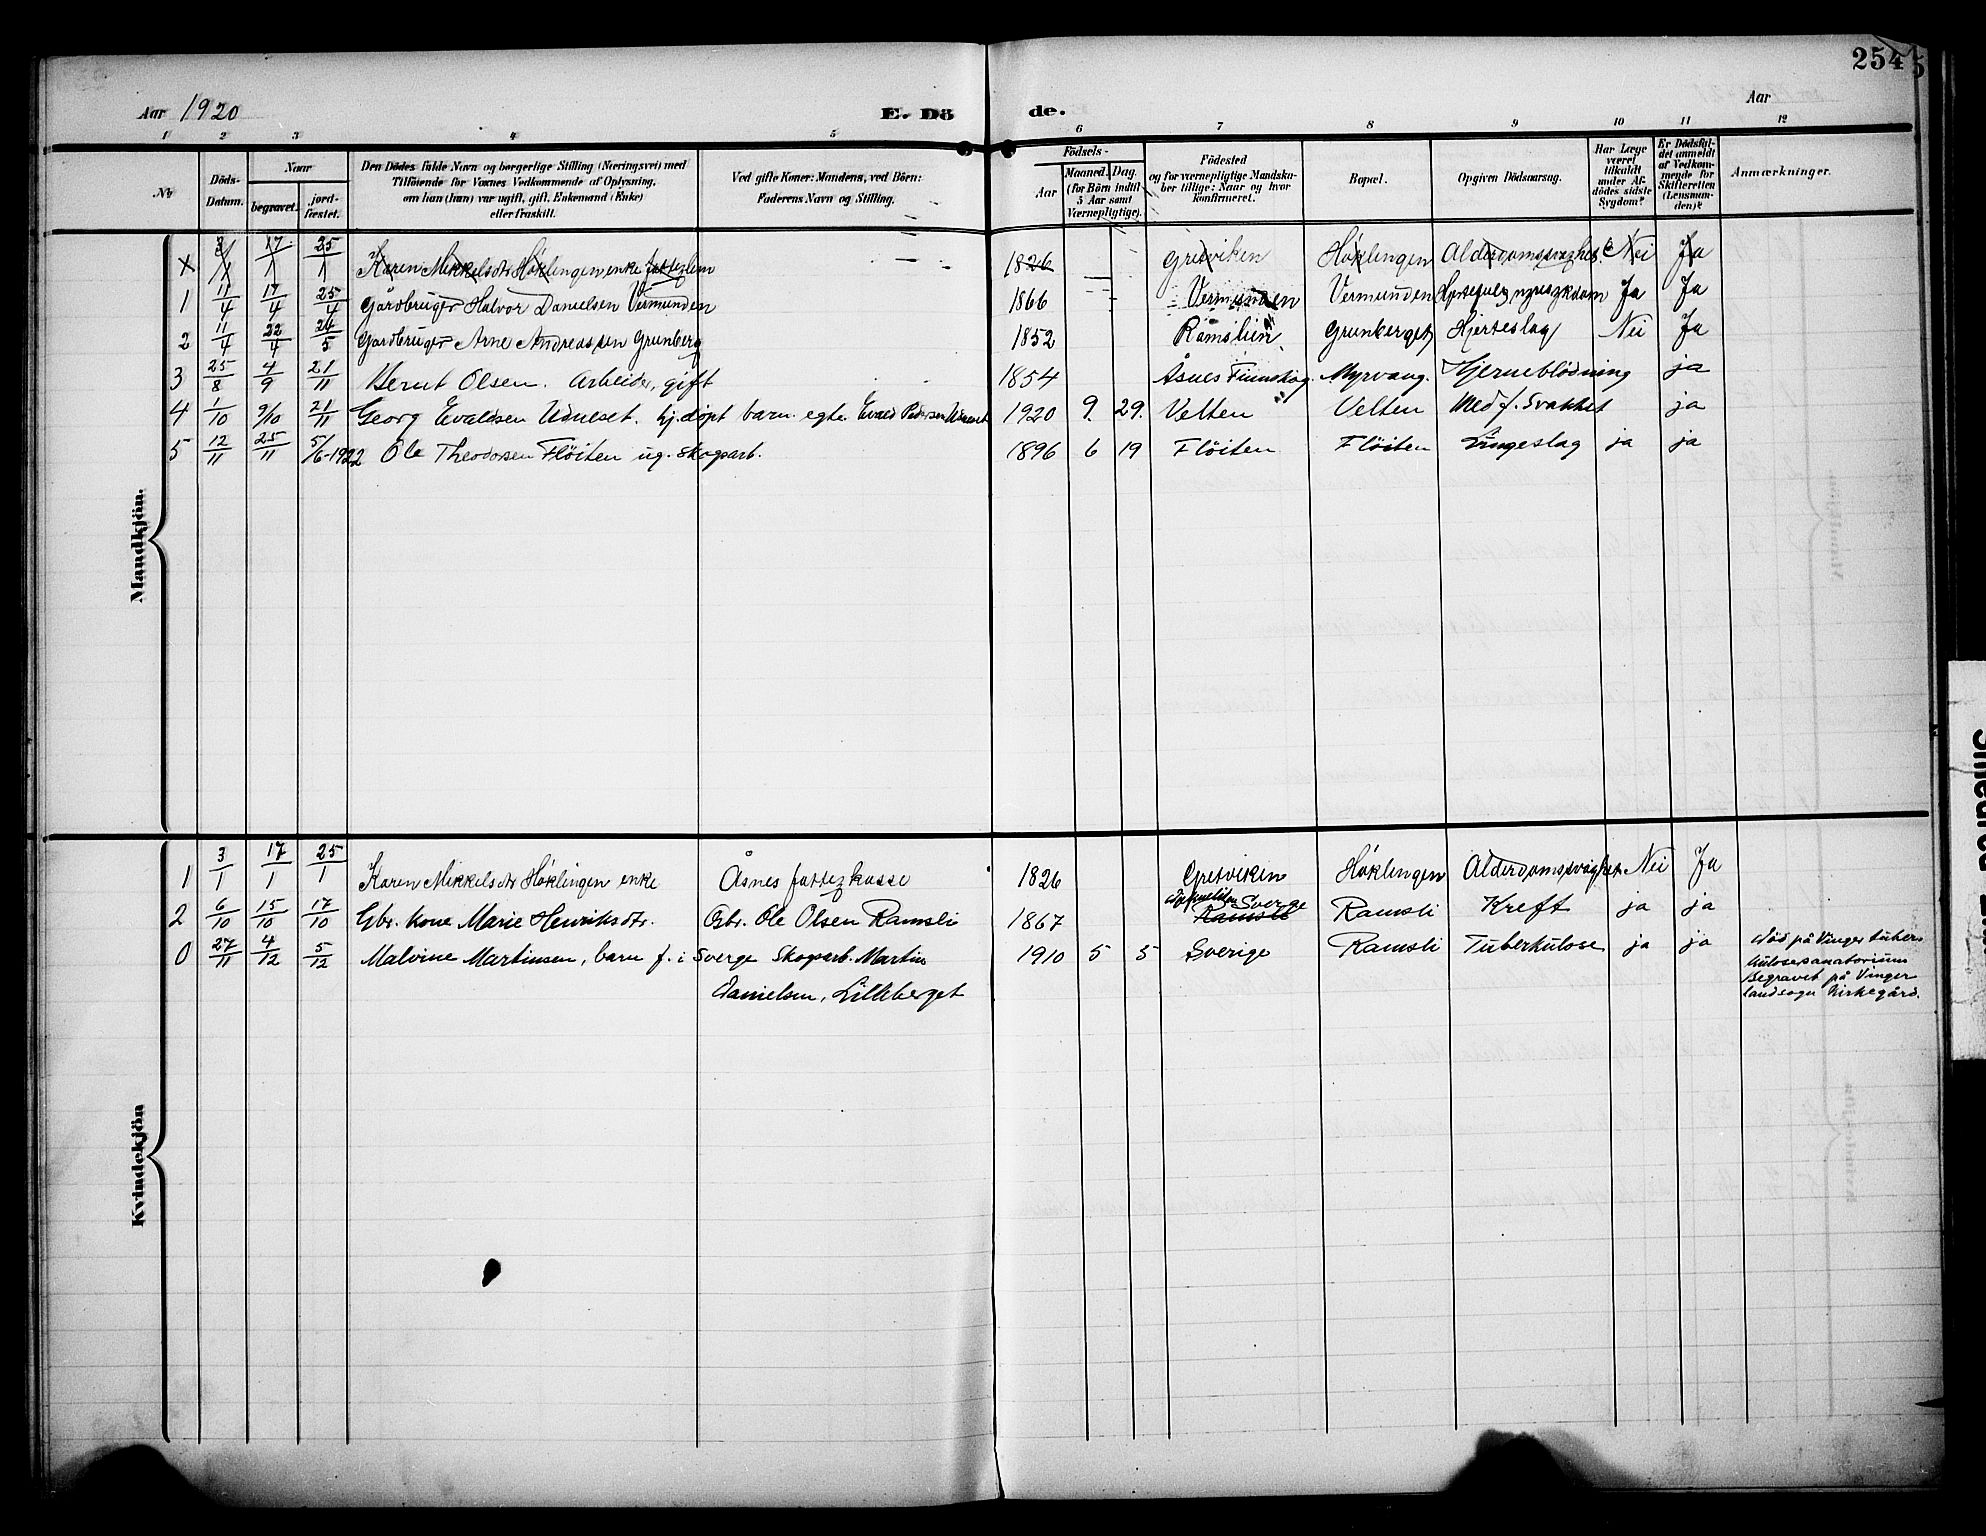 254
Aar 1920 E. Dö de. Aar
1 2 3 4 5 6 7 8 9 10 11 12
No
Döds-Datum.
Naar
begravet.
jord-fæstet.
Den Dödes fulde Navn og borgerlige Stilling (Næringsvei) med
Tilföiende for Voxnes Vedkommende af Oplysning,
om han (hun) var ugift, gift, Enkemand (Enke)
eller fraskilt.
Ved gifte Koner: Mandens, ved Börn:
Faderens Navn og Stilling.
Födsels-
Aar
Maaned. Dag.
(for Börn indtil
5 Aar samt
Værnepligtige).
Födested
og for værnepligtige Mandska-
ber tillige: Naar og hvor
konfirmeret.
Bopæl.
Opgiven Dödsaarsag.
Har Læge
været
tilkaldt
under Af-
dödes sidste
Sygdom?
Er Dödsfal-
det anmeldt
af Vedkom-
mende for
Skifteretten
(Lensman-
den)?
Anmærkninger.
Mandkjön.
x 3/1 17/1 25/1 Karen Mikkelsdtr Höklingen enke fattezlem 1826 Gretviken Höklingen Alderdomssvaghet. Nei Ja
1 11/4 17/4 25/4 Gårdbruger Halvor Danielsen Vermunden 1866 Vermunden Vermunden Ja Ja
2 11/4 22/4 24/5 Gardbruger Arne Andreassen Grunberg 1852 Ramslien Grunberget Hjerteslag Nei Ja
3 25/8 4/9 21/11 Bernt Olsen. Arbeider, gift 1854 Åsnes Finnskog. Myrvang. Hjerneblödning ja
4 1/10 9/10 21/11 Georg Evaldsen Udneset. hj.döpt barn. egte Evald Pedersen Udneset 1920 9. 29. Velten Velten Med f. Svakhet ja
5 12/11 25/11 5/6-1922 Ole Theodorsen Flöiten ug. skogarb. 1896 6 19 Flöiten Flöiten Lungeslag ja ja
Kvindekjön
1 3/1 17/1 25/1 Karen Mikkelsdtr Höklingen enke Åsnes fattezkasse 1826 Gretviken Höklingen Alderdomssvaghet Nei Ja
2 6/10 15/10 17/10 Gbr. kone Marie Henriksdtr. Gsbr. Ole Olsen Ramsli 1867 Sverge Ramsli Ramsli Kreft ja ja
0 27/11 4/12 5/12 Malvine Martinsen, barn f. i Sverge Skogarb. Martin 1910 5 5 Sverige Ramsli Tuberkulose ja ja Död på Vinger tuber-
Danielsen, Lilleberget kulosesanatorium
Begravet på Vinger
landsogn kirkegård.